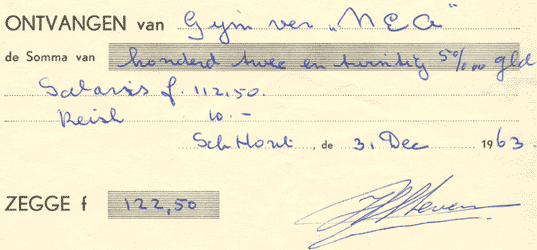 ONTVANGEN van Gym ver „NEA"
de Somma van honderd twee en twintig 50/100 gld
Salaris f. 112,50.
Reisk 10.-
Sch Hout, de 3 Dec 1963.
ZEGGE f 122,50